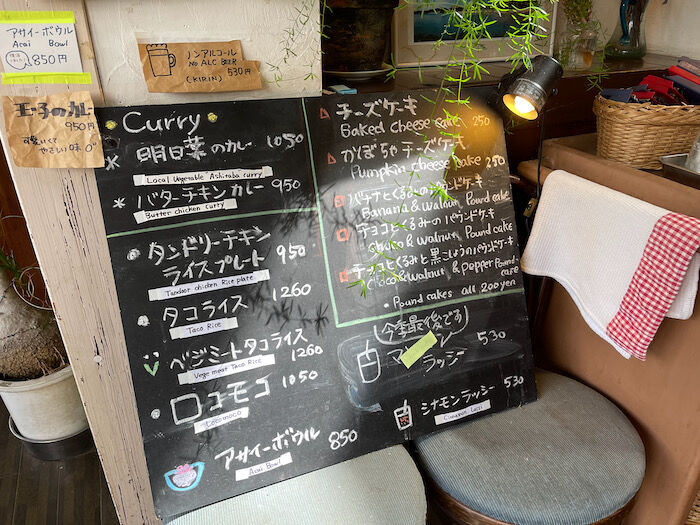 アサイーボウル
Acai Bowl
850円
ノンアルコール
NO ALC BEER
(KIRIN) 530円
玉子のカレー
950円
やさしい味
Curry
明日葉のカレー 1050
Local Vegetable Ashitaba curry
バターチキンカレー 950
Butter chicken curry
タンドリーチキン
ライスプレート 950
Tandoor chicken Rice plate
タコライス 1260
Taco Rice
ベジミートタコライス
Vege meat Taco Rice 1260
ロコモコ 1050
Locomoco
アサイーボウル 850
Acai Bowl
チーズケーキ
Baked Cheese cake 250
かぼちゃチーズケーキ
Pumpkin cheese cake 250
バナナとくるみのパウンドケーキ
Banana & walnut Pound cake
チョコとくるみのパウンドケーキ
choco & walnut Pound cake
チョコとくるみと黒こしょうのパウンドケーキ
Choco & walnut & pepper Pound cake
• Pound cakes all 200yen
今季最後です
ラッシー 530
シナモンラッシー 530
Cinnamon Lassi